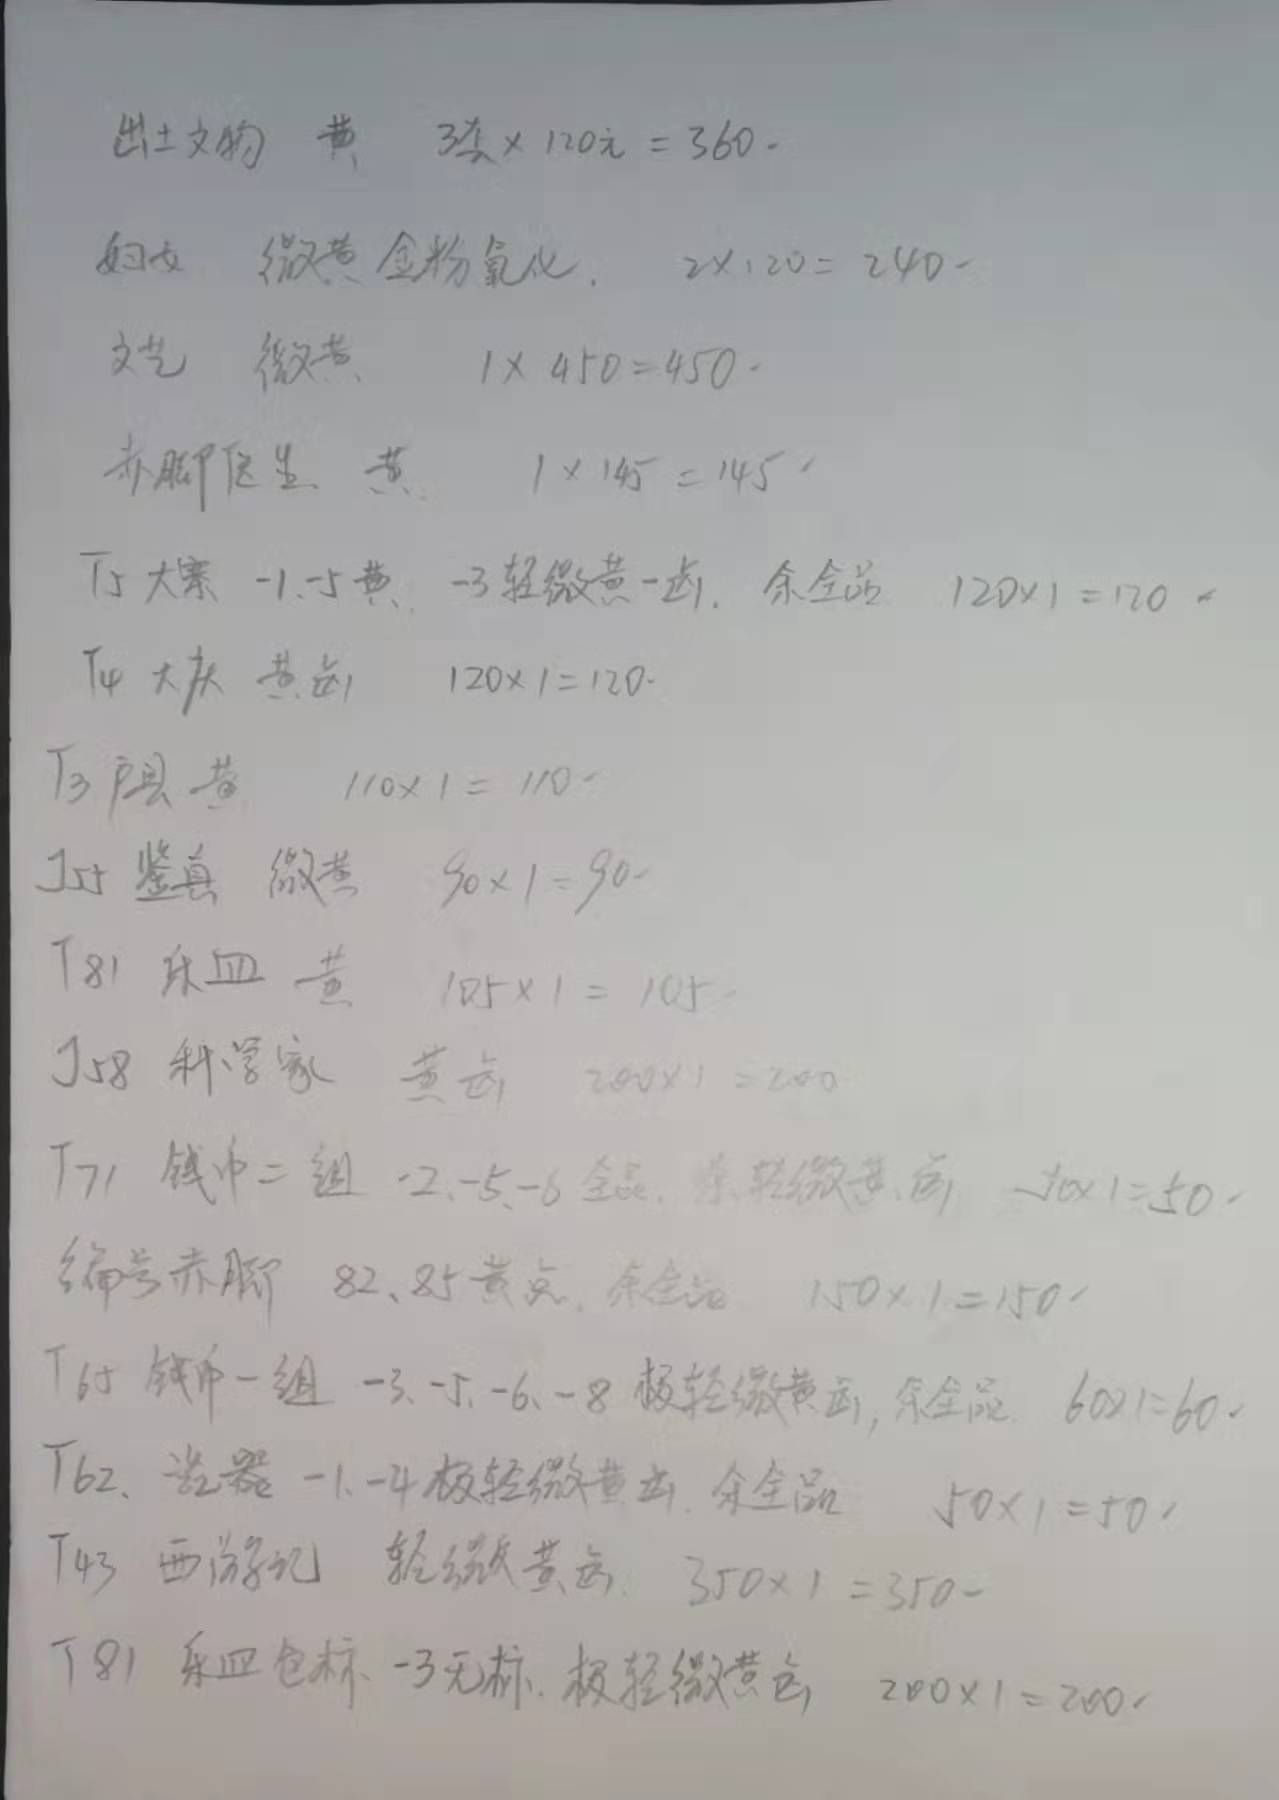 出土文物 黄 3套×120元=360.
妇女 微黄金粉氧化. 2×120=240-
文艺 微黄 1×450=450.
赤脚医生 黄. 1×145=145
T5大寨 -1.-5黄. -3轻微黄一齿. 余全品 120×1=120
T4 大庆 黄齿 120×1=120.
T3户县 黄 110×1=110-
J55鉴真 微黄 90×1=90-
T81 乐皿 黄 105×1=105-
J58 科学家 黄齿 200×1=200
T71 钱币二组 -2.-5.-6全品. 余轻微黄齿 50×1=50.
编号赤脚 82、85黄点. 余全品 150×1=150
T65 钱币一组 -3.-5.-6.-8极轻微黄齿, 余全品 60×1=60.
T62、瓷器 -1.-4极轻微黄齿. 余全品 50×1=50
T43 西游记 轻微黄齿. 350×1=350-
T81 乐皿色标 -3无标. 极轻微黄齿 200×1=200